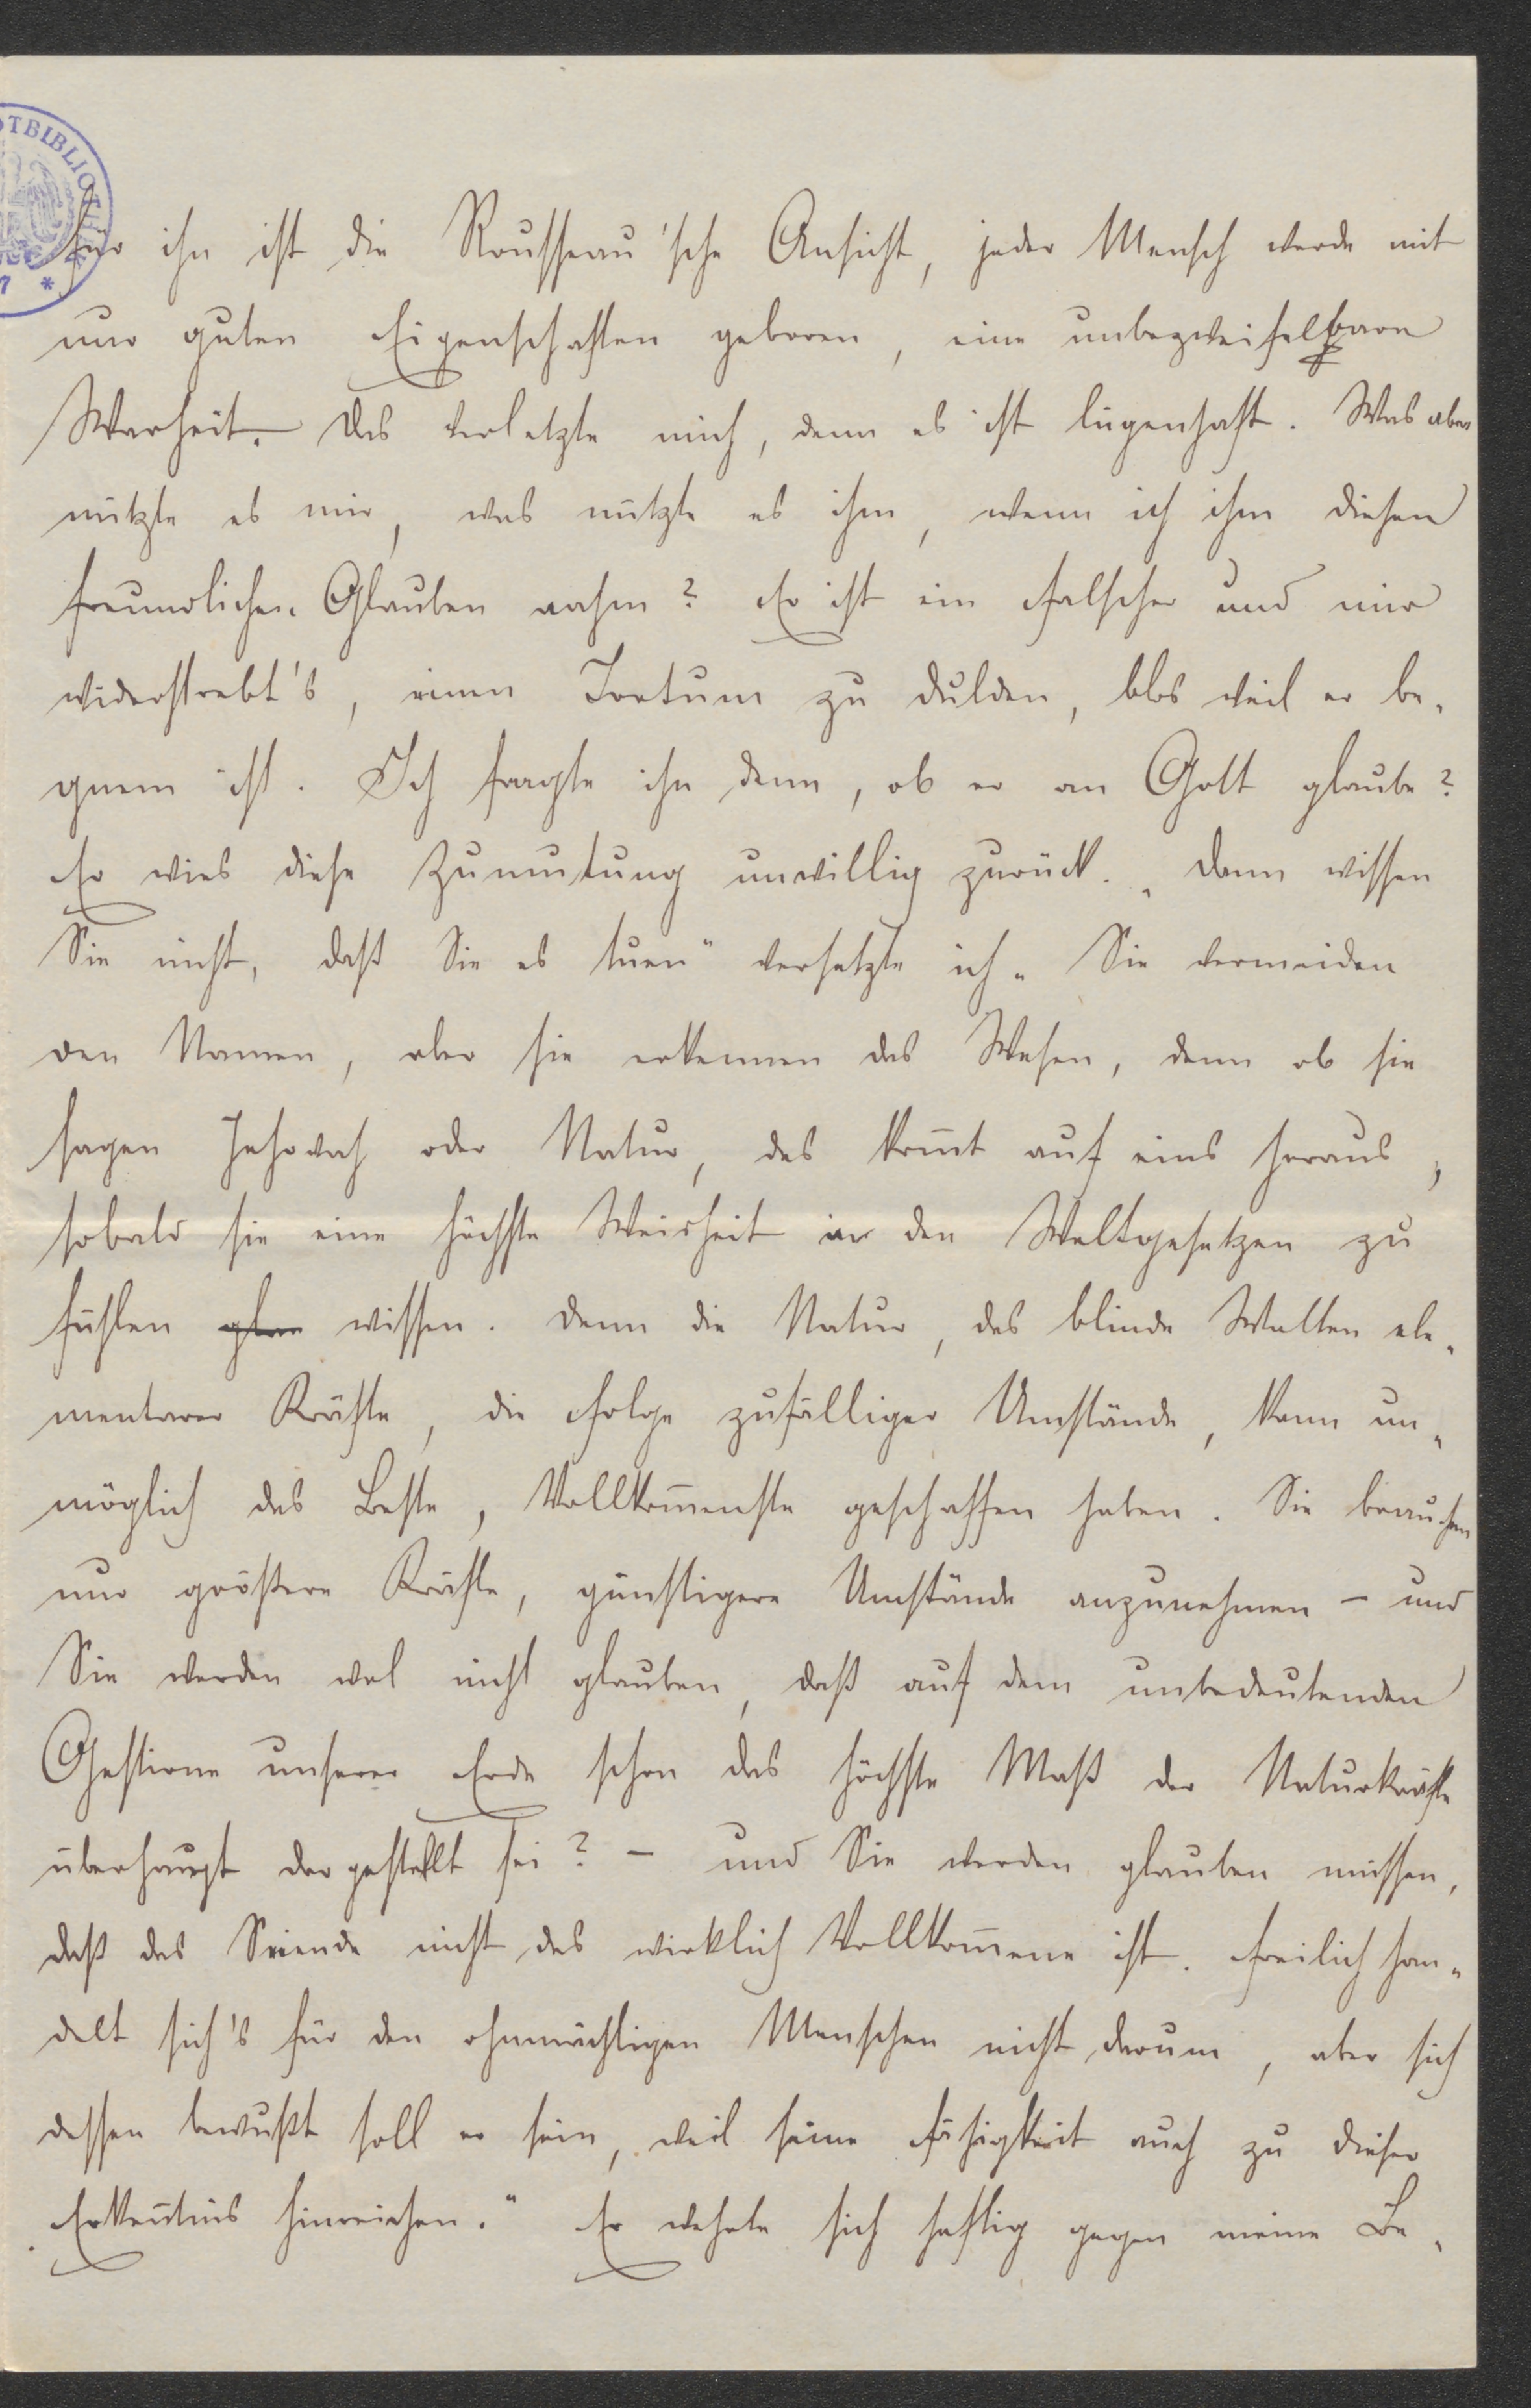 für ihn ist die Rousseau'sche Ansicht, jeder Mensch werde mit
nur guten Eigenschaften geboren, eine unbezweifelbare
Warheit. Das verletzte mich, denn es ist lügenhaft. Was aber
nützte es mir, was nützte es ihm, wenn ich ihm diesen
freundlichen Glauben nahm? Er ist ein falscher und mir
widerstrebt's, einen Irrtum zu dulden, blos weil er be-
quem ist. Ich fragte ihn dann, ob er an Gott glaube?
Er wies diese Zumutung unwillig zurück. „Dann wissen
Sie nicht, daß Sie es tuen" versetzte ich „Sie vermeiden
den Namen, aber sie erkennen das Wesen, denn ob sie
sagen Jehovah oder Natur, das kom̅t auf eins heraus,
sobald sie eine höchste Weisheit in den Weltgesetzen zu
fühlen glau wissen. Denn die Natur, das blinde Walten ele-
mentarer Kräfte, die Folge zufälliger Umstände, kann un-
möglich das Beste, Vollkom̅enste geschaffen haben. Sie brauchen
nur größere Kräfte, günstigere Umstände anzunehmen – und
Sie werden wol nicht glauben, daß auf dem unbedeutenden
Gestirne unserer Erde schon das höchste Maß der Naturkräfte
überhaupt dargestellt sei? – und Sie werden glauben müssen,
daß das Seiende nicht das wirklich Vollkom̅ene ist. Freilich han-
delt sich's für den ohnmächtigen Menschen nicht darum, aber sich
dessen bewußt soll er sein, weil seine Fähigkeit auch zu dieser
Erken̅tnis hinreichen." Er wehrte sich heftig gegen meine Be-
OTBIBLIOT
7 *